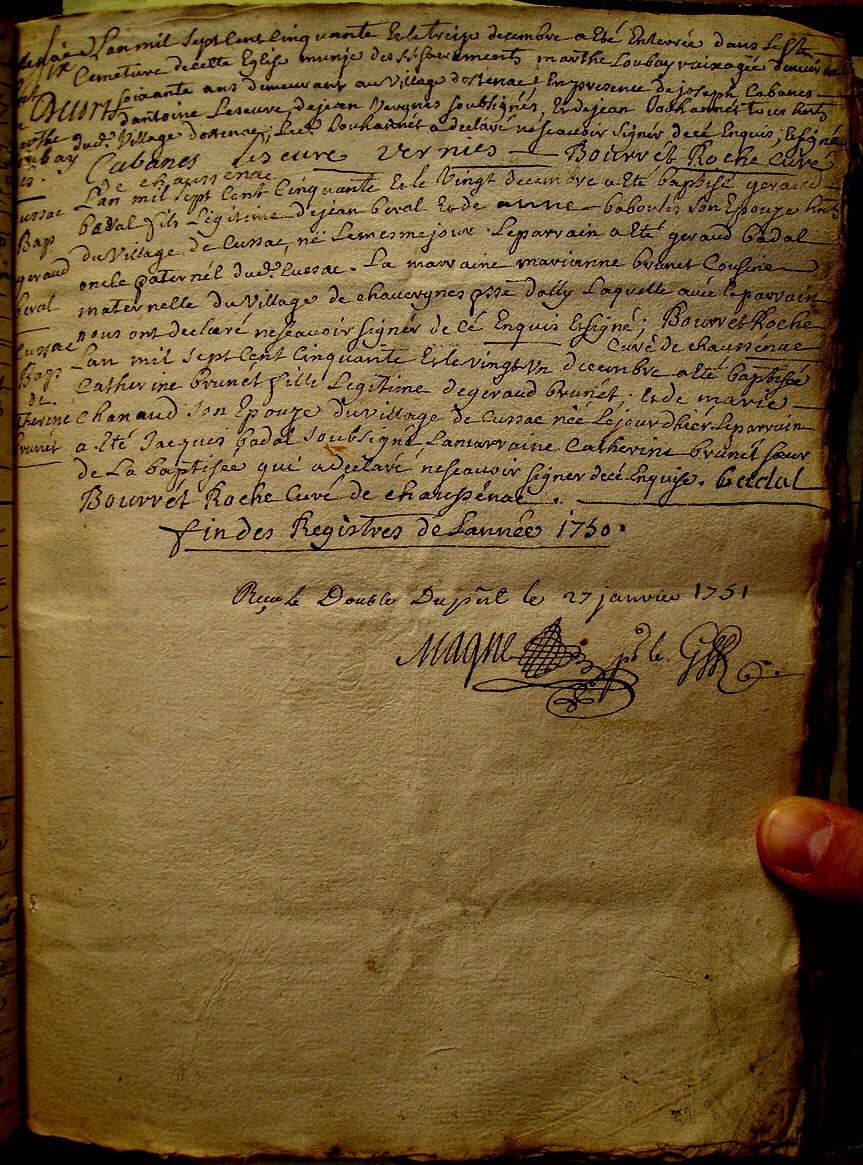 Lan mil sept Cent Cinquante Et le treize decembre a Eté Enterrée dans Le
Cemetiere de cette Eglise munie des sts sacrements marthe Loubayrou agée denviron
soixante ans demeurant au Village dostenac; En presence de joseph Cabanes
dantoine Leseure, de jean Vergnes soubsignés, Et de jean Douhannet tous hnts
dud. Village dostenac; Led. Douhannet a declaré ne scavoir signer de cé Enquis; Et signé
Cabanes Leseure vernies Bourrét Roche Curé
de chaussenac
Lan mil sept Cent Cinquante Et le Vingt decembre a Eté baptisé geraud
badal fils Légitime de jean beral Et de anne baboulés son Epouze hnts
du Village de Cussac, né Le mesme jour. Le parrain a Eté geraud badal
oncle paternél dud. Cussac. La marraine marianne brunet Cousine
maternelle du Village de chauvergnes psse dally Laquelle avéc le parrain
nous ont declaré ne scavoir signér de Cé Enquis Et signé; Bourrét Roche
Curé de chaussénac
Lan mil sept Cent Cinquante Et le Vingt Un decembre a Eté baptisée
Catherine brunét fille Legitime de geraud brunét; et de marie
Chanaud son Epouze du village de Cussac née Le jour dhiér Le parrain
a Eté Jacques badal soubsigné, La marraine Catherine brunét sœur
de La baptisée qui a declaré ne scavoir signer de cé Enquise. badal
Bourrét Roche Curé de chaussénac.
Cussac
Bap
geraud
beral
Cussac
Bap
de
Catherine
brunét
fin des Registres de Lannée 1750.
Reçu Le Double Du pnt le 27 janvier 1751
Magne